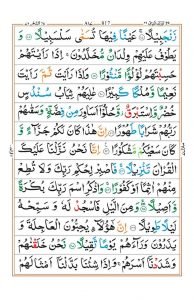 917
زَنْجَبِيْلًا ۝ عَيْنًا فِيْهَا تُسَمّٰى سَلْسَبِيْلًا ۝ وَ
يَطُوْفُ عَلَيْهِمْ وِلْدَانٌ مُّخَلَّدُوْنَ ۚ اِذَا رَاَيْتَهُمْ
حَسِبْتَهُمْ لُؤْلُؤًا مَّنْثُوْرًا ۝ وَاِذَا رَاَيْتَ ثَمَّ رَاَيْتَ
نَعِيْمًا وَّمُلْكًا كَبِيْرًا ۝ عٰلِيَهُمْ ثِيَابُ سُنْدُسٍ
خُضْرٌ وَّاِسْتَبْرَقٌ ۡ وَّحُلُّوْۤا اَسَاوِرَ مِنْ فِضَّةٍ ۚ وَسَقٰىهُمْ
رَبُّهُمْ شَرَابًا طَهُوْرًا ۝ اِنَّ هٰذَا كَانَ لَكُمْ جَزَآءً وَّ
كَانَ سَعْيُكُمْ مَّشْكُوْرًا ۝ اِنَّا نَحْنُ نَزَّلْنَا عَلَيْكَ
الْقُرْاٰنَ تَنْزِيْلًا ۝ فَاصْبِرْ لِحُكْمِ رَبِّكَ وَلَا تُطِعْ
مِنْهُمْ اٰثِمًا اَوْ كَفُوْرًا ۝ وَاذْكُرِ اسْمَ رَبِّكَ بُكْرَةً
وَّاَصِيْلًا ۝ وَمِنَ الَّيْلِ فَاسْجُدْ لَهٗ وَسَبِّحْهُ
لَيْلًا طَوِيْلًا ۝ اِنَّ هٰٓؤُلَآءِ يُحِبُّوْنَ الْعَاجِلَةَ وَ
يَذَرُوْنَ وَرَآءَهُمْ يَوْمًا ثَقِيْلًا ۝ نَحْنُ خَلَقْنٰهُمْ
وَشَدَدْنَآ اَسْرَهُمْ ۚ وَاِذَا شِئْنَا بَدَّلْنَآ اَمْثَالَهُمْ